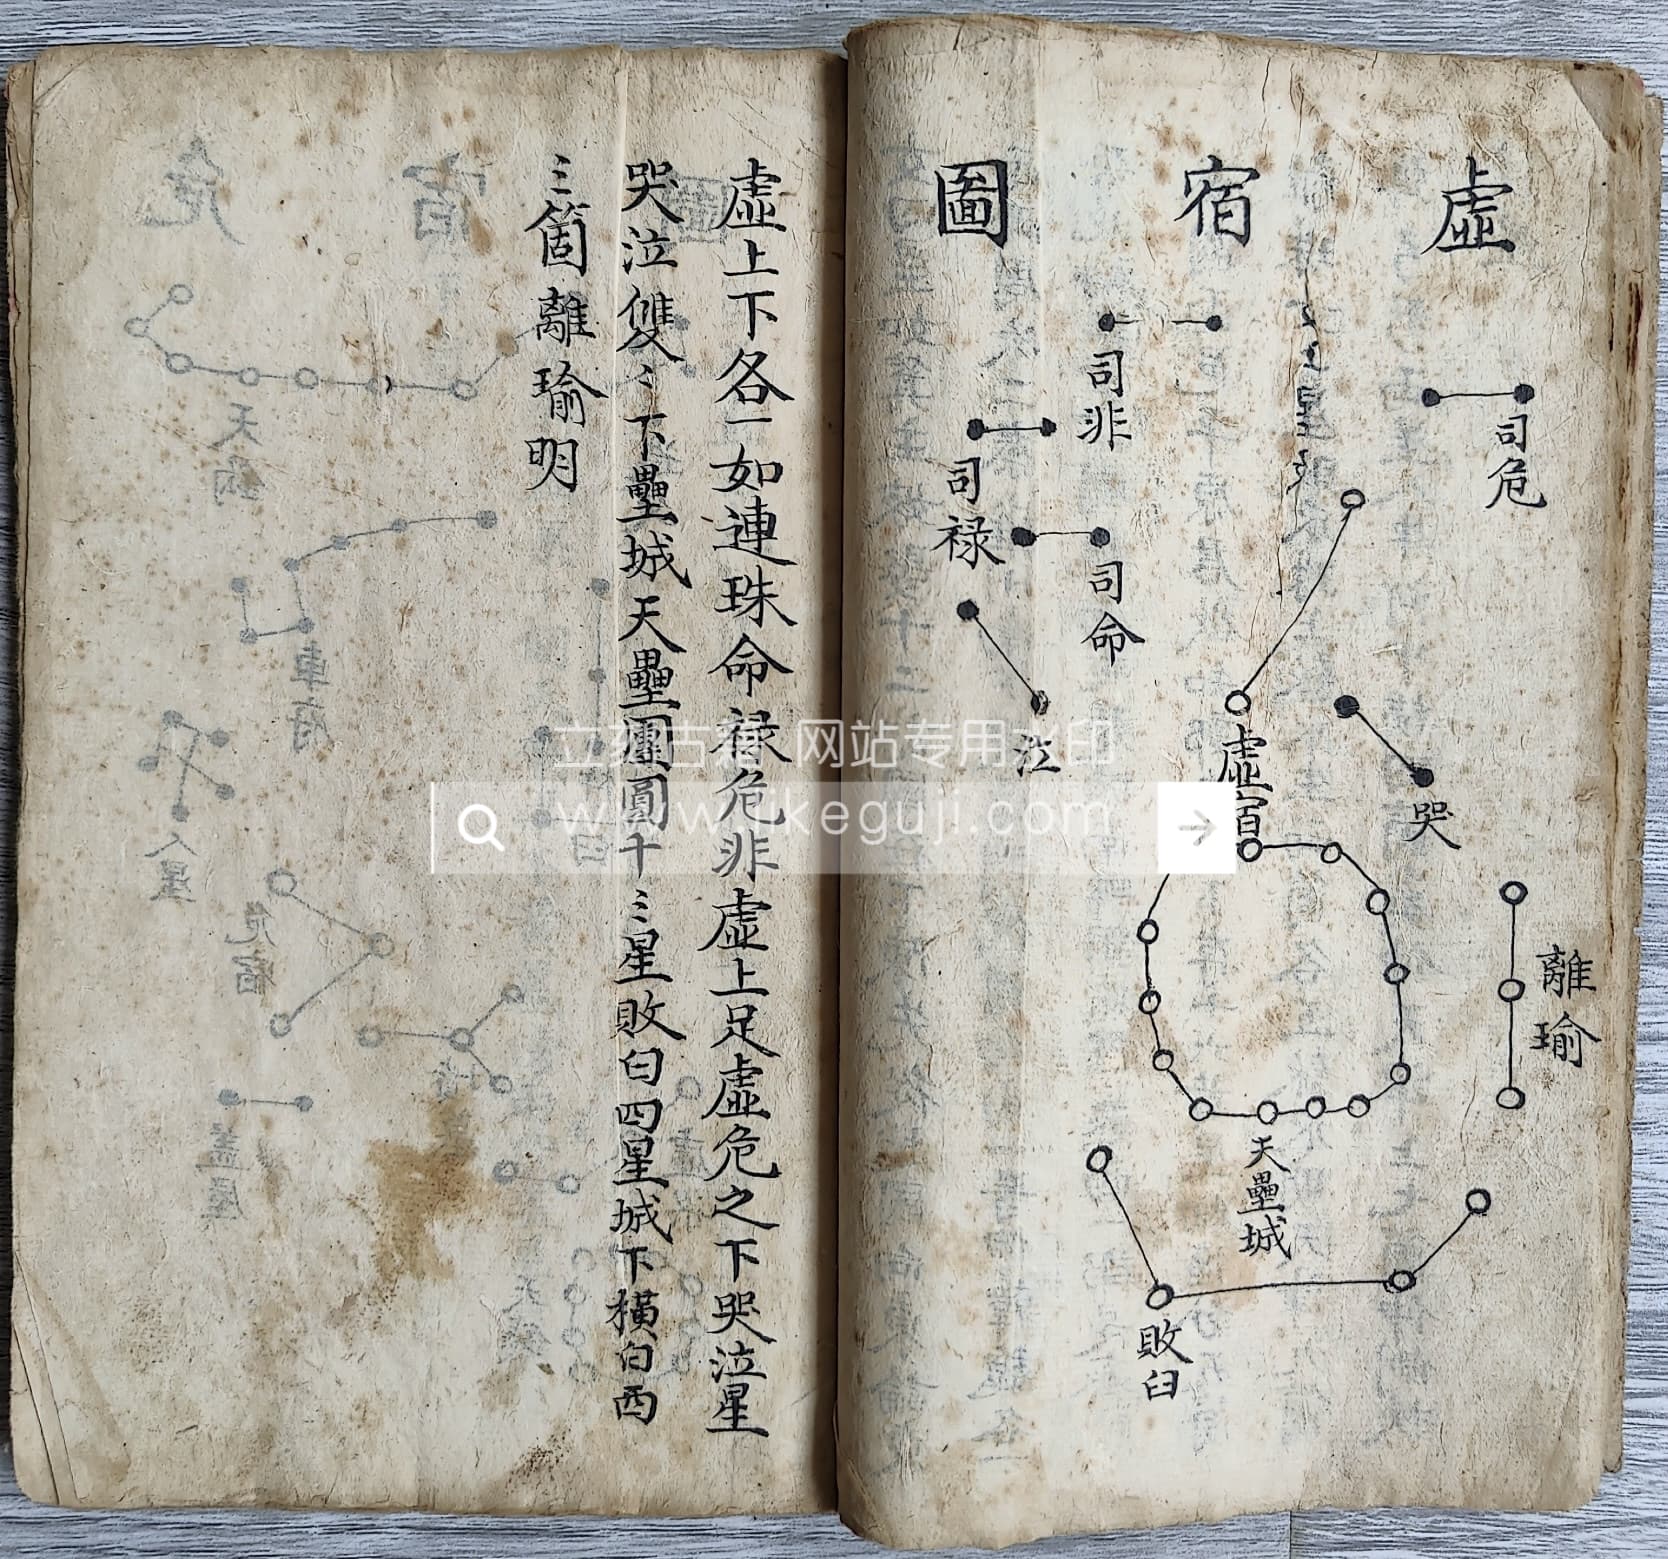 虛宿圖
司危
司非
司禄
司命
虛宿
哭
泣
離瑜
天壘城
敗臼
虛上下各一如連珠命禄危非虛上足虛危之下哭泣星
哭泣雙〻下壘城天壘團圓十三星敗臼四星城下橫臼西
三箇離瑜明
立刻古籍 网站专用水印
www.likeguji.com